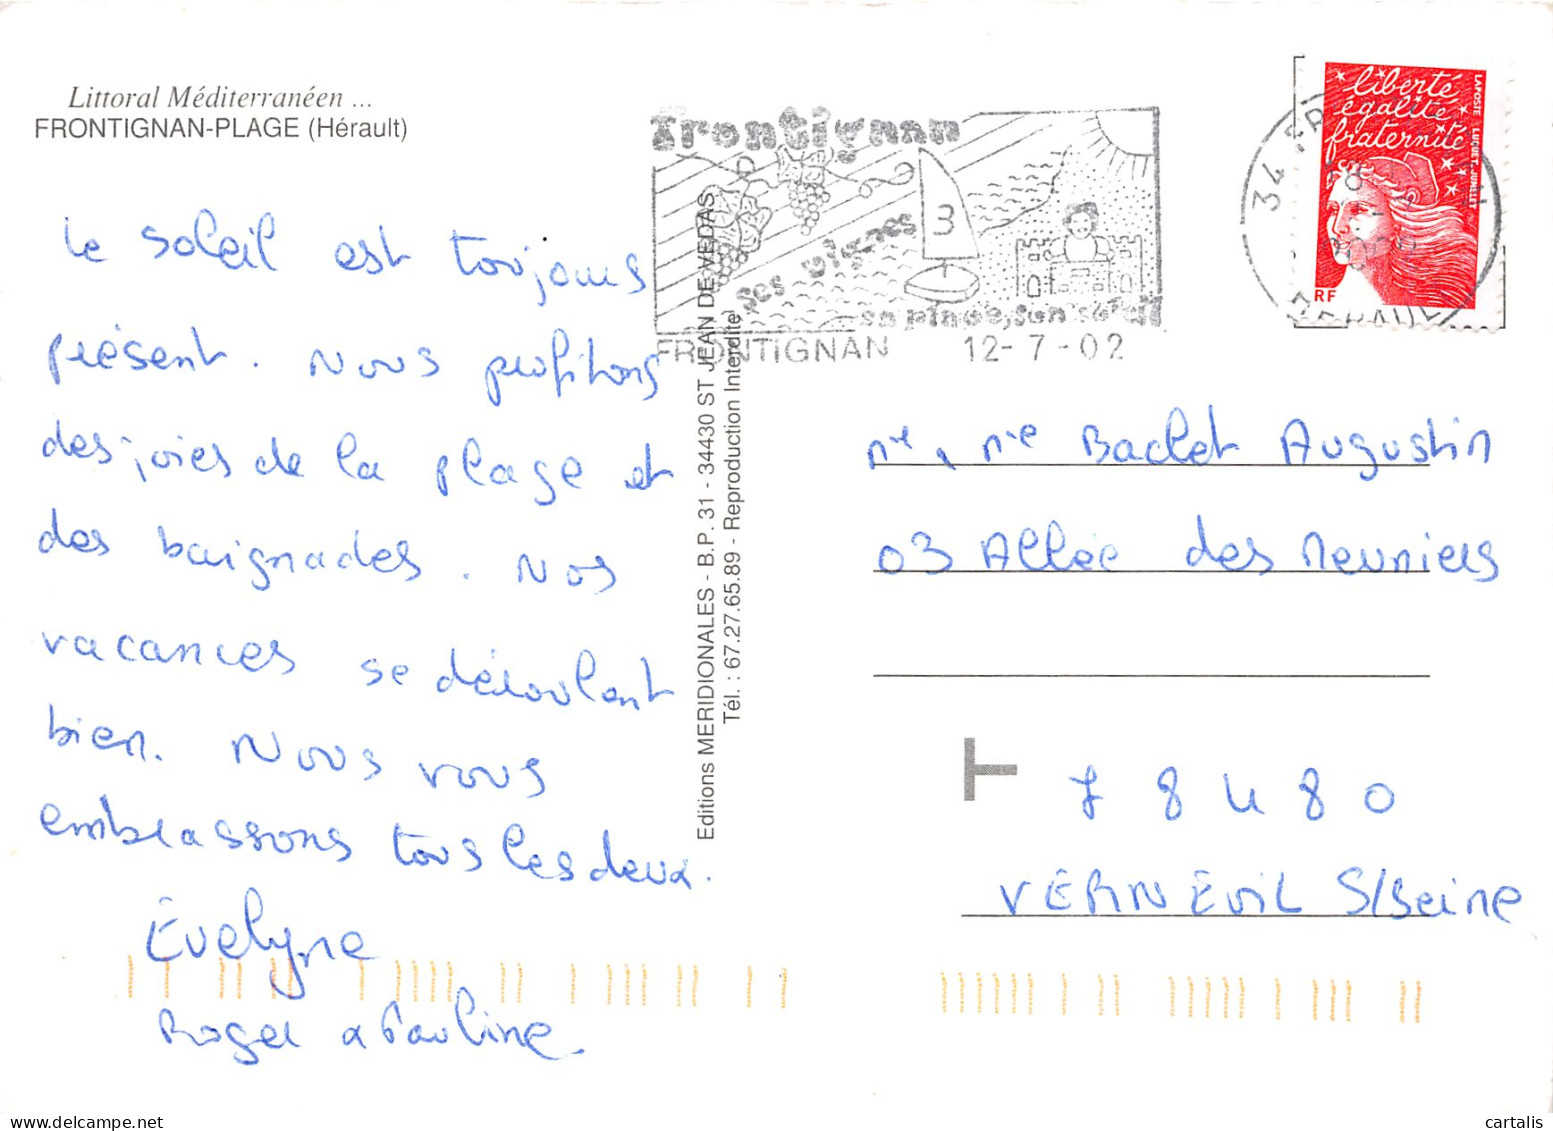 Littoral Méditerranéen ...
FRONTIGNAN-PLAGE (Hérault)
Le soleil est toujours
présent. Nous profitons
des joies de la plage et
des baignades. Nos
vacances se déroulent
bien. Nous vous
embrassons tous les deux.
Évelyne
Roger & Pauline
Editions MERIDIONALES - B.P. 31 - 34430 ST JEAN DE VEDAS
Tél. : 67.27.65.89 - Reproduction Interdite
frontignan
ses vignes
3
sa plage, son soleil
FRONTIGNAN 12-7-02
liberté
égalité
fraternité
LA POSTE LUQUET-JUMELET
RF
34
HERAULT
Mr, Me Baclet Augustin
03 Allée des Meuniers
T
78480
VERNEUIL S/Seine
cartalis